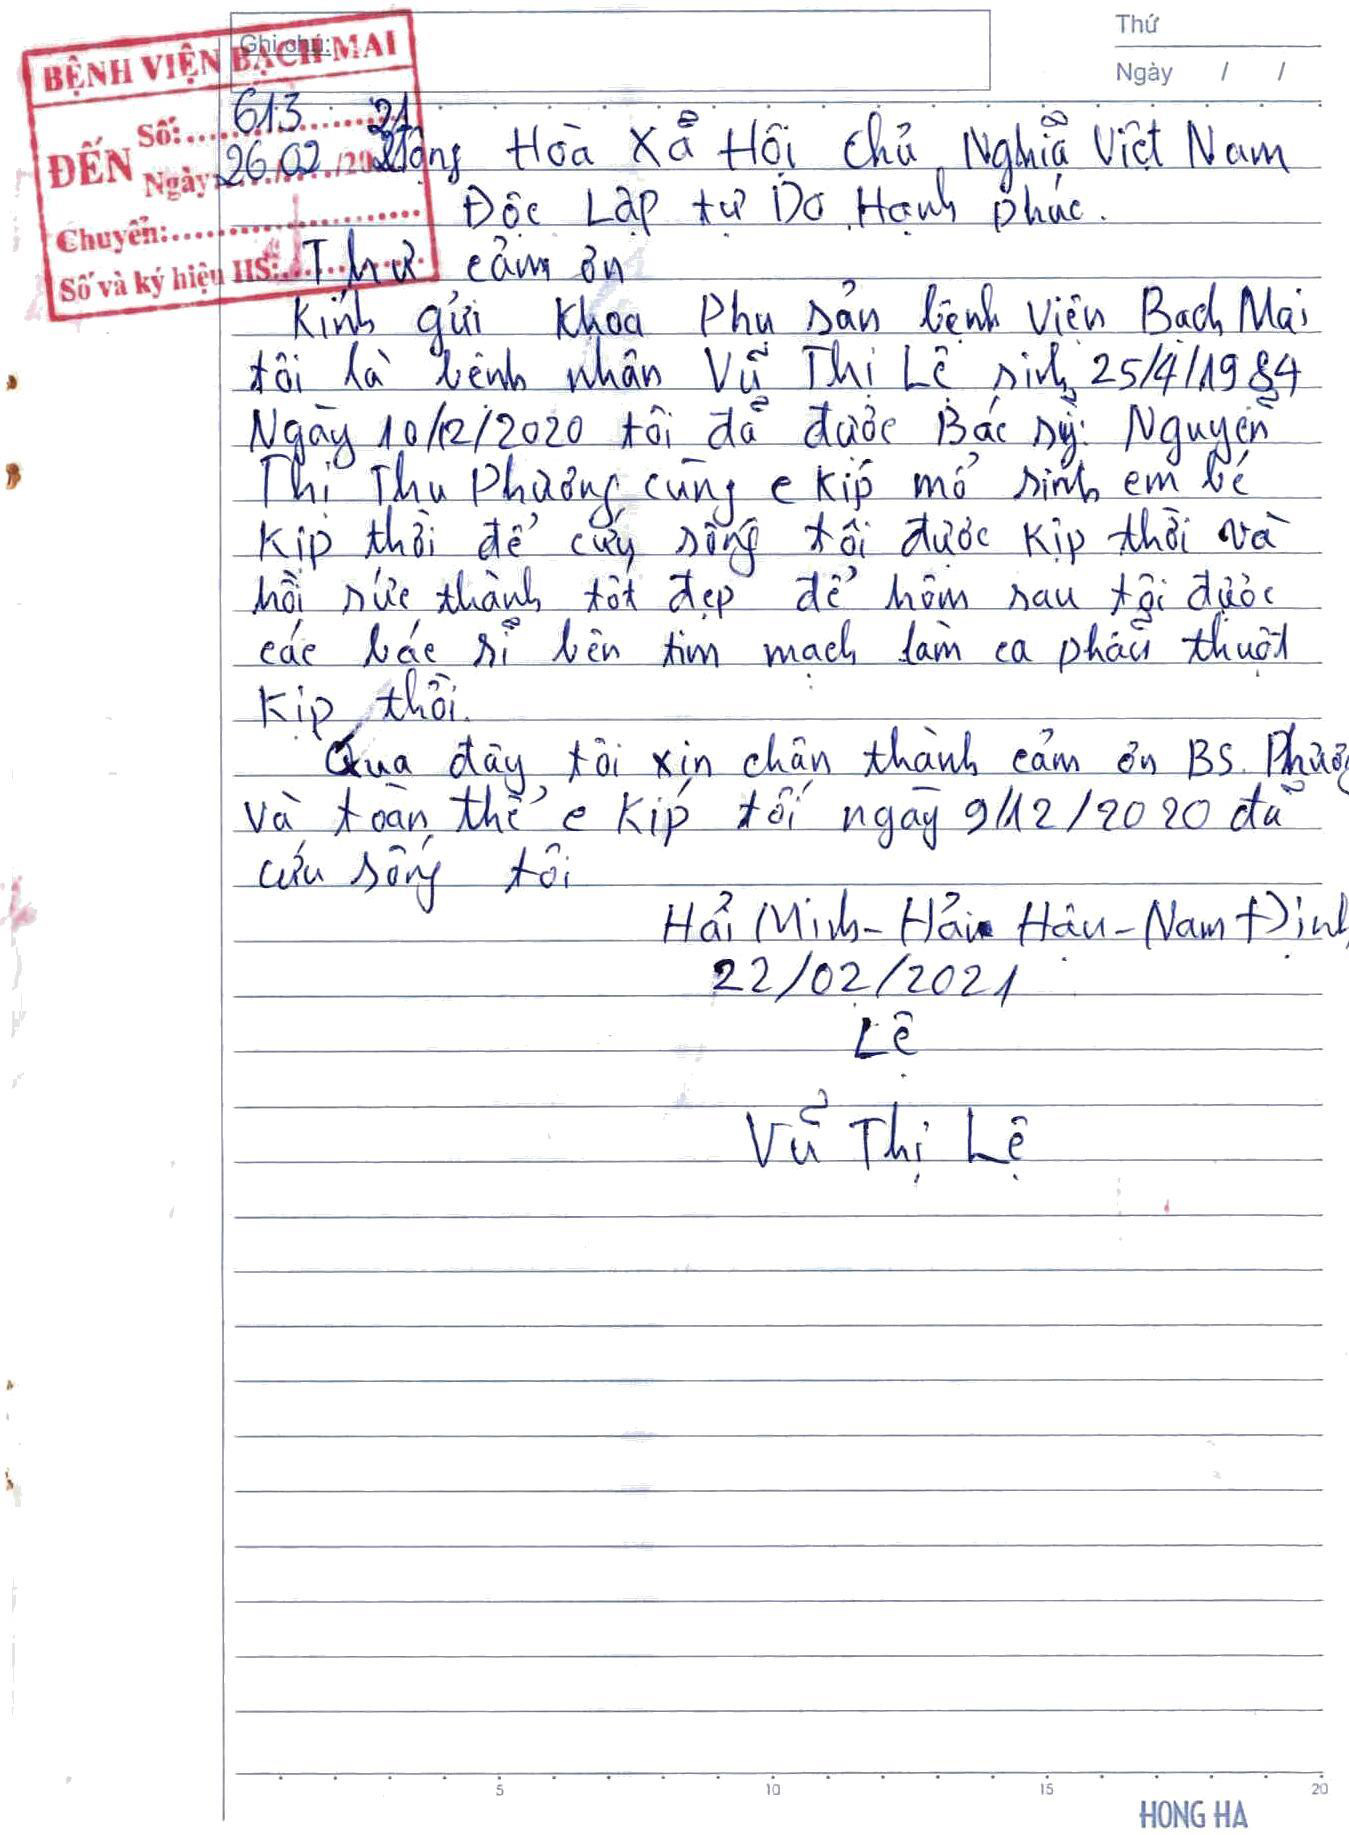 Ghi chú:
Thứ
Ngày / /
BỆNH VIỆN BẠCH MAI
ĐẾN
Số: 613 21
Ngày: 26/02/2021
Chuyển:
Số và ký hiệu HS:
Cộng Hoà Xã Hội chủ Nghĩa Việt Nam
Độc Lập tự Do Hạnh phúc.
Thư cảm ơn
Kính gửi Khoa Phụ sản bệnh viện Bạch Mai
tôi là bệnh nhân Vũ Thị Lệ sinh 25/4/1984
Ngày 10/12/2020 tôi đã được Bác sỹ: Nguyễn
Thị Thu Phương cùng e kíp mổ sinh em bé
Kịp thời để cứu sống tôi được Kịp thời và
hồi sức thành tốt đẹp để hôm sau tôi được
các bác sĩ bên tim mạch làm ca phẫu thuật
Kịp thời.
Qua đây tôi xin chân thành cảm ơn BS. Phương
và toàn thể e Kíp tối ngày 9/12/2020 đã
cứu sống tôi
Hải Minh - Hải Hậu - Nam Định
22/02/2021
Lệ
Vũ Thị Lệ
5 10 15 20
HONG HA